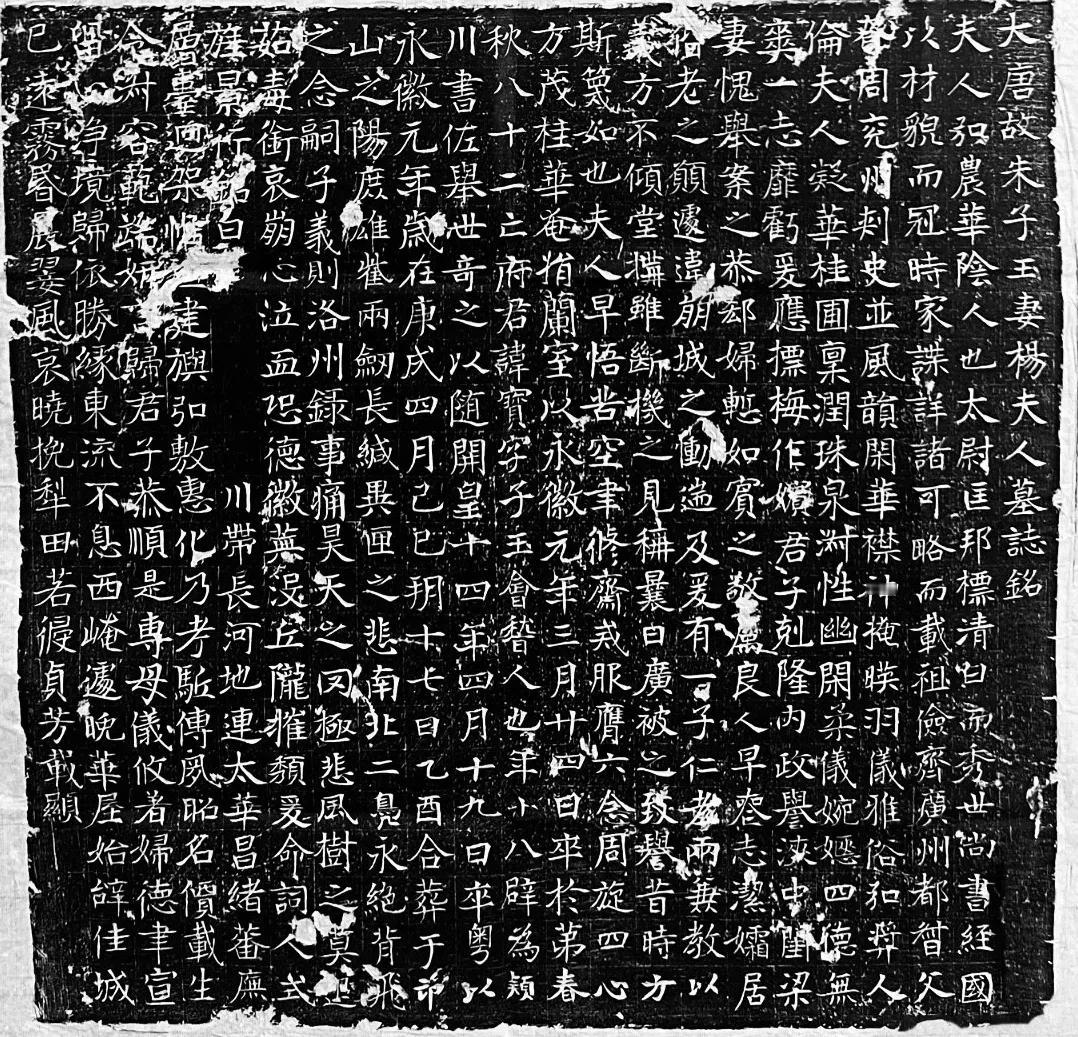 大唐故朱子玉妻楊夫人墓誌銘
夫人弘農華陰人也太尉匡邦標清白而秀世尚書經國
以材貌而冠時家諜詳諸可略而載祖儉齊廣州都督父
周兖州刾史並風韻閑華襟神掩暎羽儀雅俗弘奬人
倫夫人凝華桂圃稟潤珠泉沖性幽閑柔儀婉嫕四德無
爽一志靡虧爰應摽梅作嬪君子剋隆內政譽浹中閨梁
妻愧舉案之恭郄婦慙如賓之敬爲良人早喪志潔孀居
偕老之願遽違崩城之慟遄及爰有一子仁孝兩兼教以
義方不傾堂構雖斷機之見稱曩日廣被之致譽昔時方
斯蔑如也夫人早悟苦空聿修齋戒服膺六念周旋四心
方茂桂華奄摧蘭室以永徽元年三月廿四日卒於第春
秋八十二亡府君諱寶字子玉會稽人也年十八辟為潁
川書佐舉世奇之以随開皇十四年四月十九日卒粤以
永徽元年歲在庚戌四月己巳朔十七日乙酉合葬于邙
山之陽庻雄雌兩劒長緘異匣之悲南北二鳧永絕背飛
之念嗣子義則洛州録事痛昊天之罔極悲風樹之莫止
茹毒銜哀崩心泣血恐德徽蕪沒丘隴摧頹爰命詞人式
旌景行銘曰 川帶長河地連太華昌緒蕃廡
層臺迥架 建旟弘敷惠化乃考駈傳夙昭名價載生
令淑容範 歸君子恭順是專母儀攸著婦德聿宣
留心淨境歸依勝緣東流不息西崦遽晚華屋始辝佳城
已遠霧昏晨翣風哀曉挽犁田若得貞芳載顯